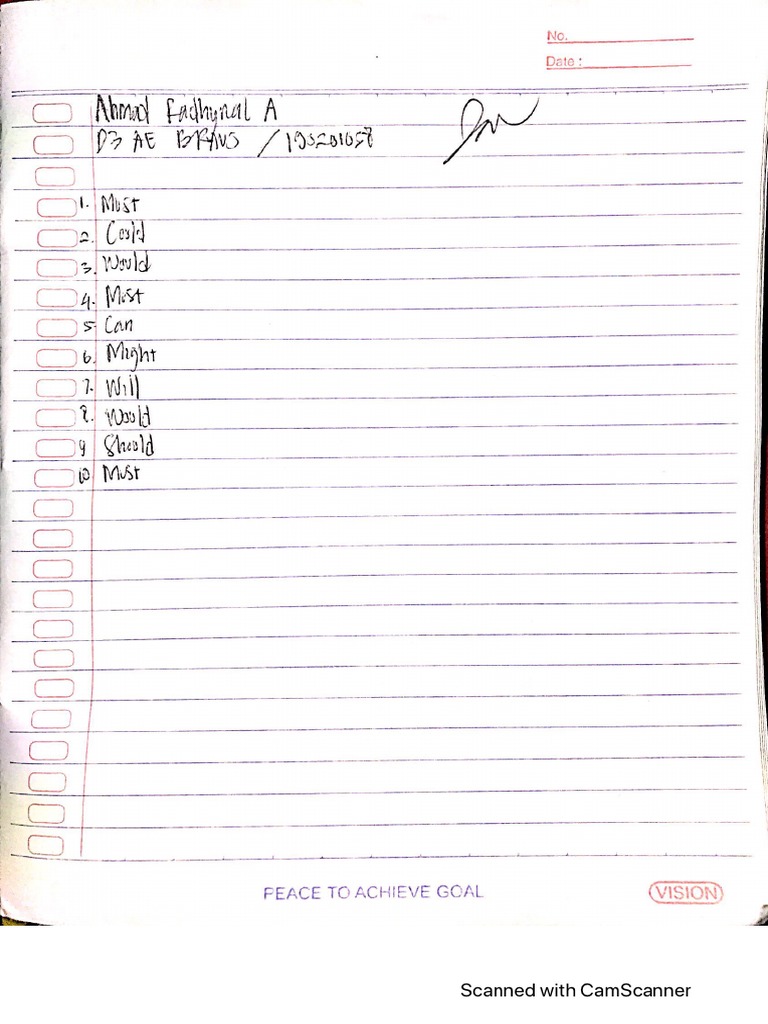 No.
Date :
Ahmad Fadhynal A
D3 AE BRAVO /
1. Must
2. Could
3. Would
4. Must
5. Can
6. Might
7. Will
8. Would
9 Should
10 Must
PEACE TO ACHIEVE GOAL
VISION
Scanned with CamScanner